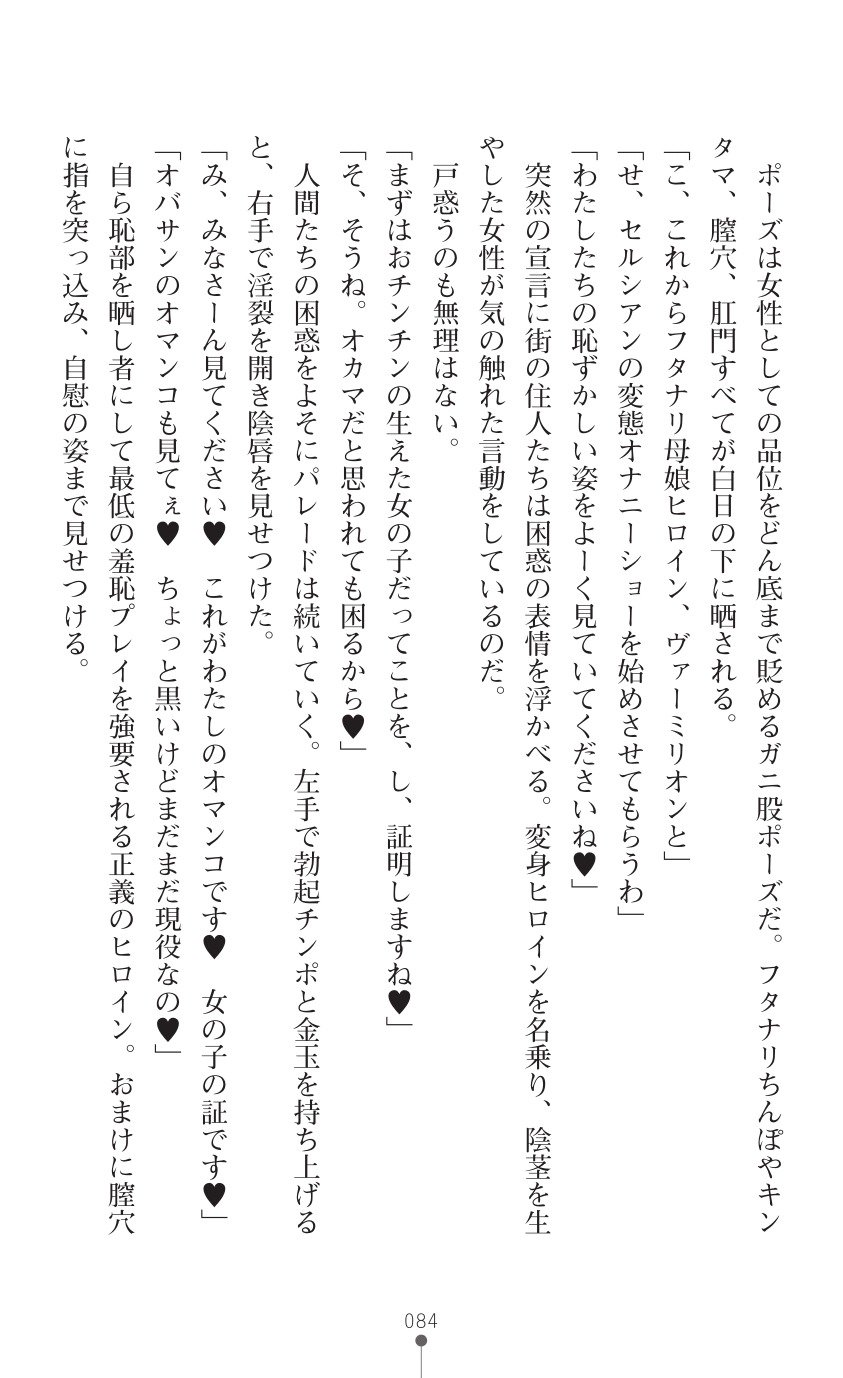 ポーズは女性としての品位をどん底まで貶めるガニ股ポーズだ。フタナリちんぽやキン
タマ、膣穴、肛門すべてが白日の下に晒される。
「こ、これからフタナリ母娘ヒロイン、ヴァーミリオンと」
「せ、セルシアンの変態オナニーショーを始めさせてもらうわ」
「わたしたちの恥ずかしい姿をよーく見ていてくださいね♥」
突然の宣言に街の住人たちは困惑の表情を浮かべる。変身ヒロインを名乗り、陰茎を生
やした女性が気の触れた言動をしているのだ。
戸惑うのも無理はない。
「まずはおチンチンの生えた女の子だってことを、し、証明しますね♥」
「そ、そうね。オカマだと思われても困るから♥」
人間たちの困惑をよそにパレードは続いていく。左手で勃起チンポと金玉を持ち上げる
と、右手で淫裂を開き陰唇を見せつけた。
「み、みなさーん見てください♥　これがわたしのオマンコです♥　女の子の証です♥」
「オバサンのオマンコも見てぇ♥　ちょっと黒いけどまだまだ現役なの♥」
自ら恥部を晒し者にして最低の羞恥プレイを強要される正義のヒロイン。おまけに膣穴
に指を突っ込み、自慰の姿まで見せつける。
084